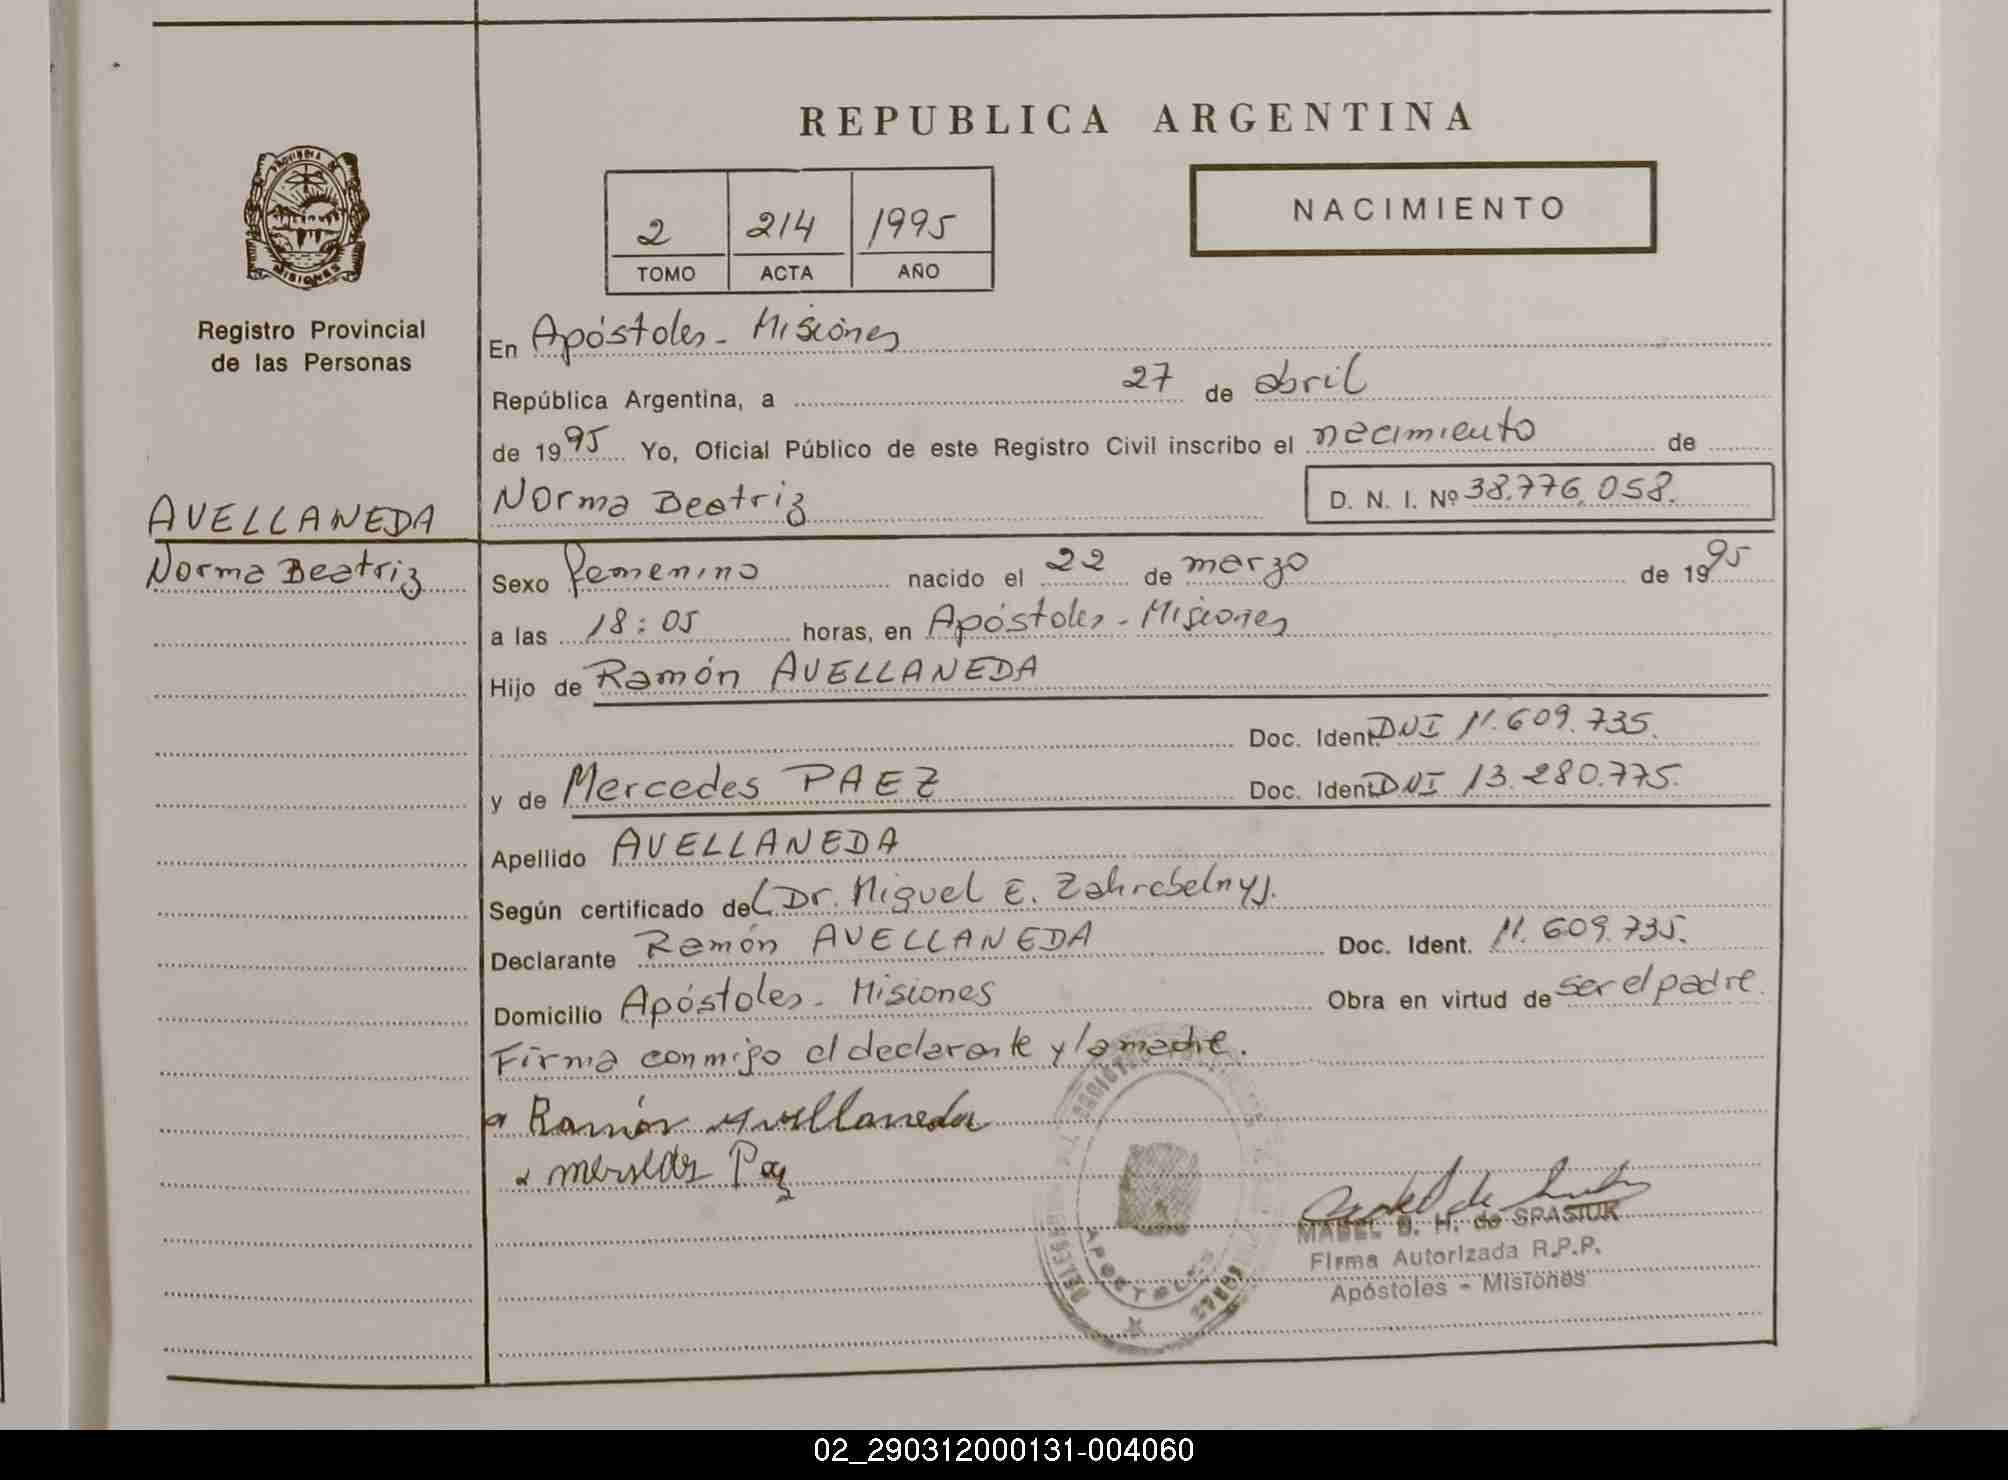 REPUBLICA ARGENTINA
PROVINCIA DE
MISIONES
Registro Provincial
de las Personas
2 214 1995
TOMO ACTA AÑO
NACIMIENTO
En Apóstoles - Misiones
República Argentina, a 27 de abril
de 1995 Yo, Oficial Público de este Registro Civil inscribo el nacimiento de
Norma Beatriz D. N. I. Nº 38.776.058.
AVELLANEDA
Norma Beatriz
Sexo femenino nacido el 22 de marzo de 1995
a las 18:05 horas, en Apóstoles - Misiones
Hijo de Ramón AVELLANEDA
Doc. Ident. DNI 11.609.735.
y de Mercedes PAEZ Doc. Ident. DNI 13.280.775.
Apellido AVELLANEDA
Según certificado del (Dr. Miguel E. Zahrebelny).
Declarante Ramón AVELLANEDA Doc. Ident. 11.609.735.
Domicilio Apóstoles - Misiones Obra en virtud de ser el padre.
Firma conmigo el declarante y la madre.
Ramón Avellaneda
Paez
APOSTOLES
MABEL B. H. de SPASIUK
Firma Autorizada R.P.P.
Apóstoles - Misiones
02_290312000131-004060